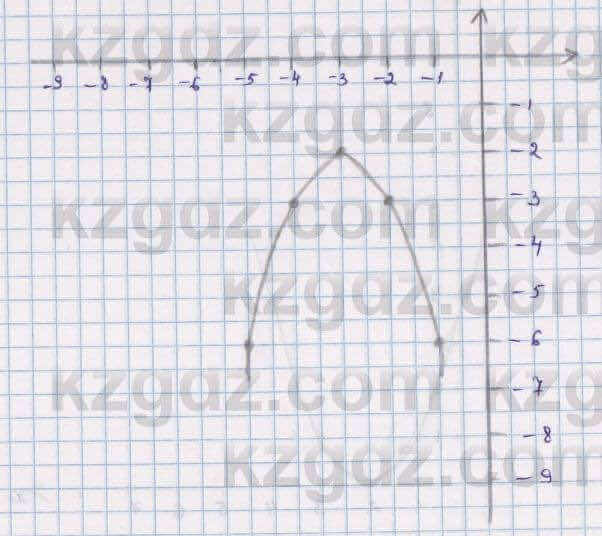 kzgaz.com kzgaz.com
-9 -8 -7 -6 -5 -4 -3 -2 -1
-1
kzgaz.com
-2
-3
kzgaz.com kzgaz.com
-4
-5
kzgaz.com
-6
-7
kzgaz.com kzgaz.com
-8
kzgaz.com
-9